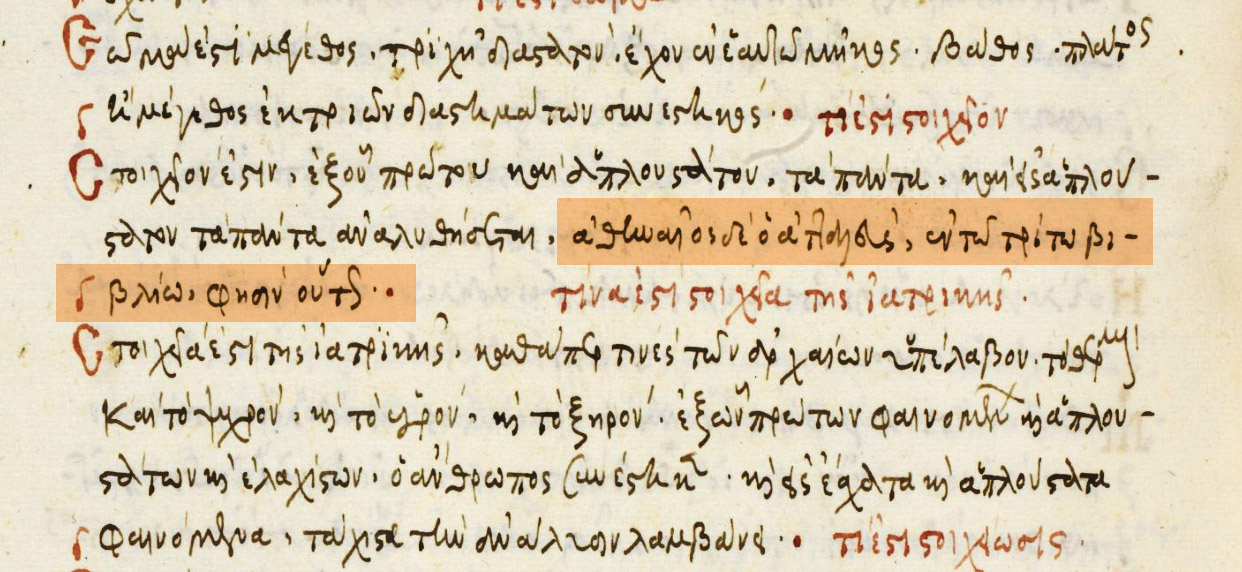 Σῶμά ἐστι μέγεθος, τριχῇ διαστατόν, ἔχον ἐν ἑαυτῷ μῆκος, βάθος, πλάτος.
ἢ μέγεθος ἐκ τριῶν διαστημάτων συνεστηκός· τί ἐστι στοιχεῖον
Στοιχεῖον ἐστιν, ἐξ οὗ πρώτου καὶ ἁπλουστάτου, τὰ πάντα, καὶ εἰς ὃ ἁπλού-
στατον τὰ πάντα ἀναλυθήσεται, ἀθηναῖος δὲ ὁ ἀτταλεὺς, ἐν τῷ τρίτῳ βι-
βλίῳ, φησὶν οὕτως· τίνα ἐστὶ στοιχεῖα τῆς ἰατρικῆς.
Στοιχεῖά ἐστι τῆς ἰατρικῆς, καθάπερ τινὲς τῶν ἀρχαίων ὑπέλαβον, τὸ θερμὸν
καὶ τὸ ψυχρόν, καὶ τὸ ὑγρόν, καὶ τὸ ξηρόν· ἐξ ὧν πρώτων φαινομένων καὶ ἁπλου-
στάτων καὶ ἐλαχίστων, ὁ ἄνθρωπος συνέστηκεν· καὶ εἰς ἃ ἔσχατα καὶ ἁπλούστατα
φαινόμενα, τὰ χιστα τὴν ἀνάλυσιν λαμβάνει· τί ἐστι στοιχείωσις.